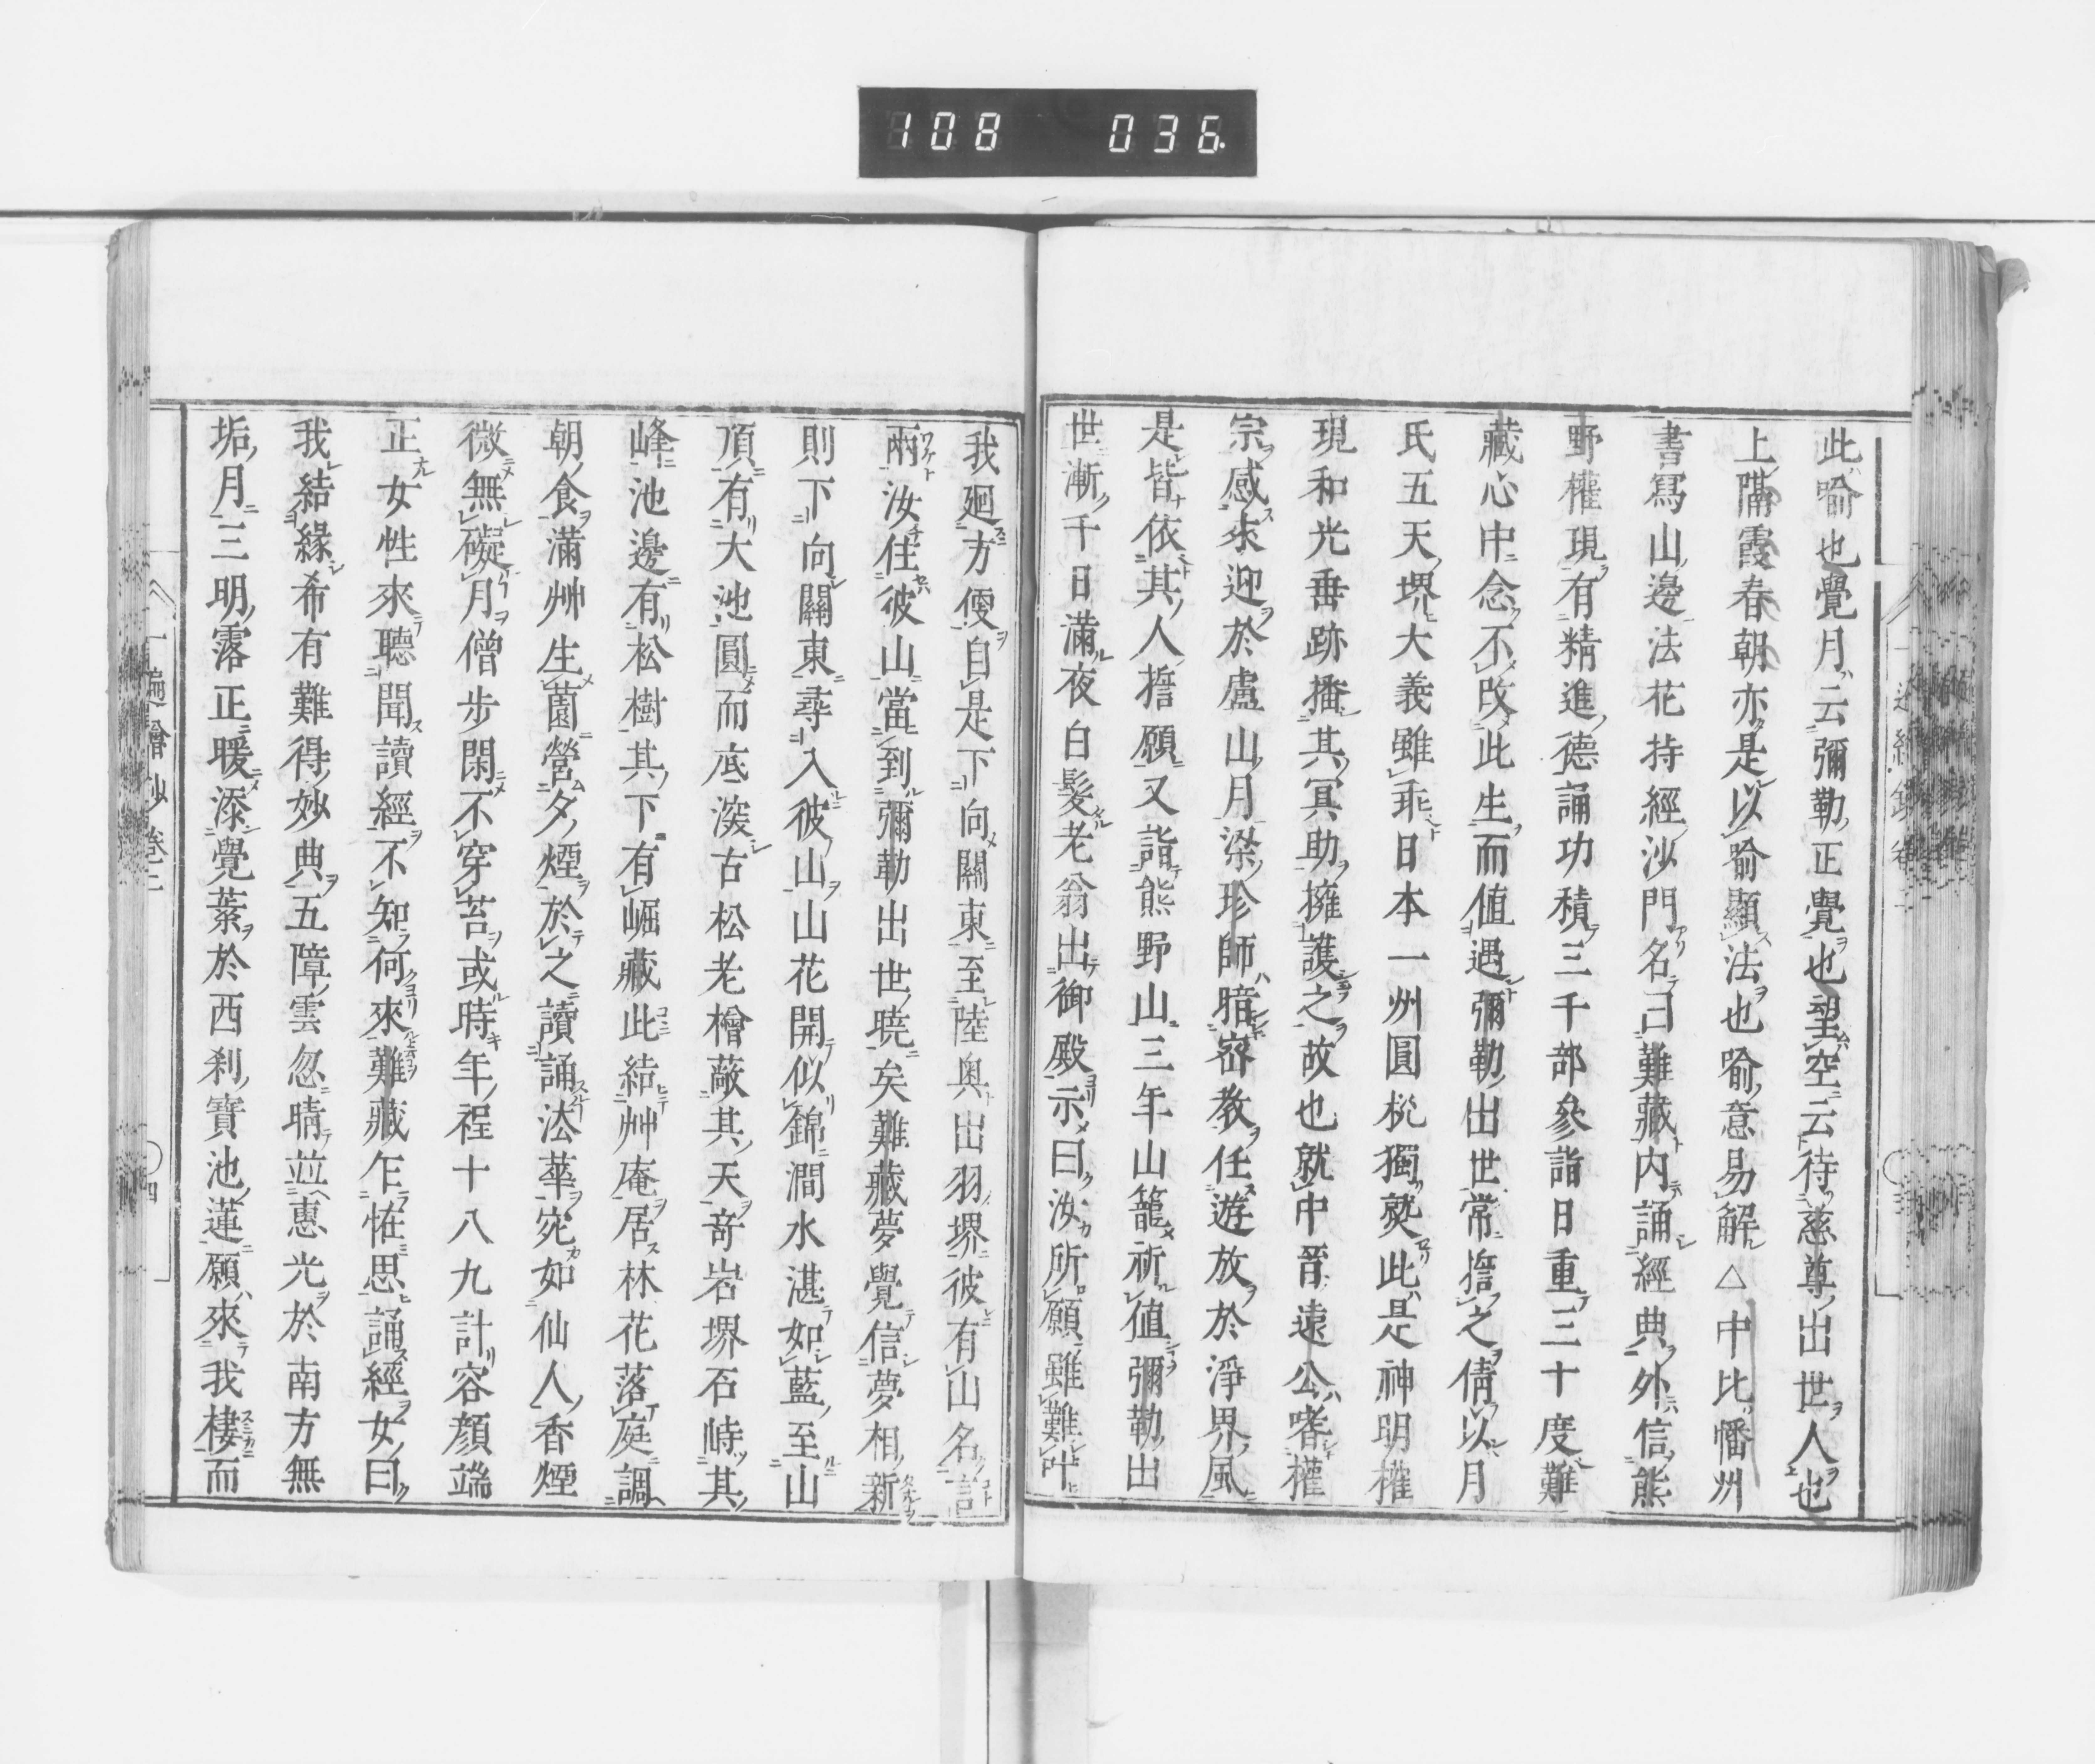 108 036
此喻也覺月云彌勒正覺也望空云待慈尊出世人也
上隔霞春朝亦是以喻顯法也喻意易解△中比幡州
書寫山邊法花持經沙門名曰難藏内誦經典外信熊
野權現有精進德誦功積三千部參詣日重三十度難
藏心中念不改此生而値遇彌勒出世常擔之倩以月
氏五天堺大義雖乖日本一州圓机獨熟此是神明權
現和光垂跡播其冥助擁護之故也就中晉遠公喀權
宗感來迎於盧山月梁珍師暗密教任遊放於淨界風
是皆依其人擔願又詣熊野山三年山籠祈値彌勒出
世漸千日滿夜白髪老翁出御殿示曰汝所願雖難叶
我廻方便自是下向關東至陸奥出羽堺彼有山名言
兩汝住彼山當到彌勒出世曉矣難藏夢覺信夢相新
則下向關東尋入彼山山花開似錦澗水湛如藍至山
頂有大池圓而底深古松老檜蔽其天竒岩堺石峙其
峰池邊有松樹其下有崛藏此結艸庵居林花落庭調
朝食滿艸生薗營夕煙於之讀誦法華宛如仙人香煙
微無礙月僧步閑不穿苔或時年程十八九計容顔端
正女性來聽聞讀經不知何來難藏乍恠思誦經女曰
我結緣希有難得妙典五障雲忽晴並惠光於南方無
垢月三明露正暖添覺蘂於西刹寶池蓮願來我棲而
一遍繪抄卷二 四